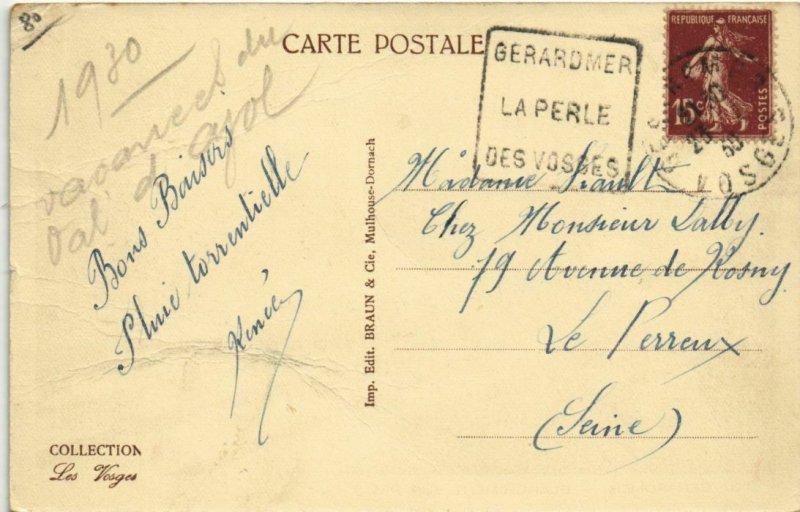 80
1930
vacances du
Val d'ajol
Bons Baisers
Pluie torrentielle
Renée
COLLECTION
Les Vosges
CARTE POSTALE
Imp. Edit. BRAUN & Cie, Mulhouse-Dornach
GERARDMER
LA PERLE
DES VOSGES
REPUBLIQUE FRANÇAISE
15c
POSTES
VOSGES
Madame
Chez Monsieur Lalby.
79 Avenue de Rosny
Le Perreux
(Seine)